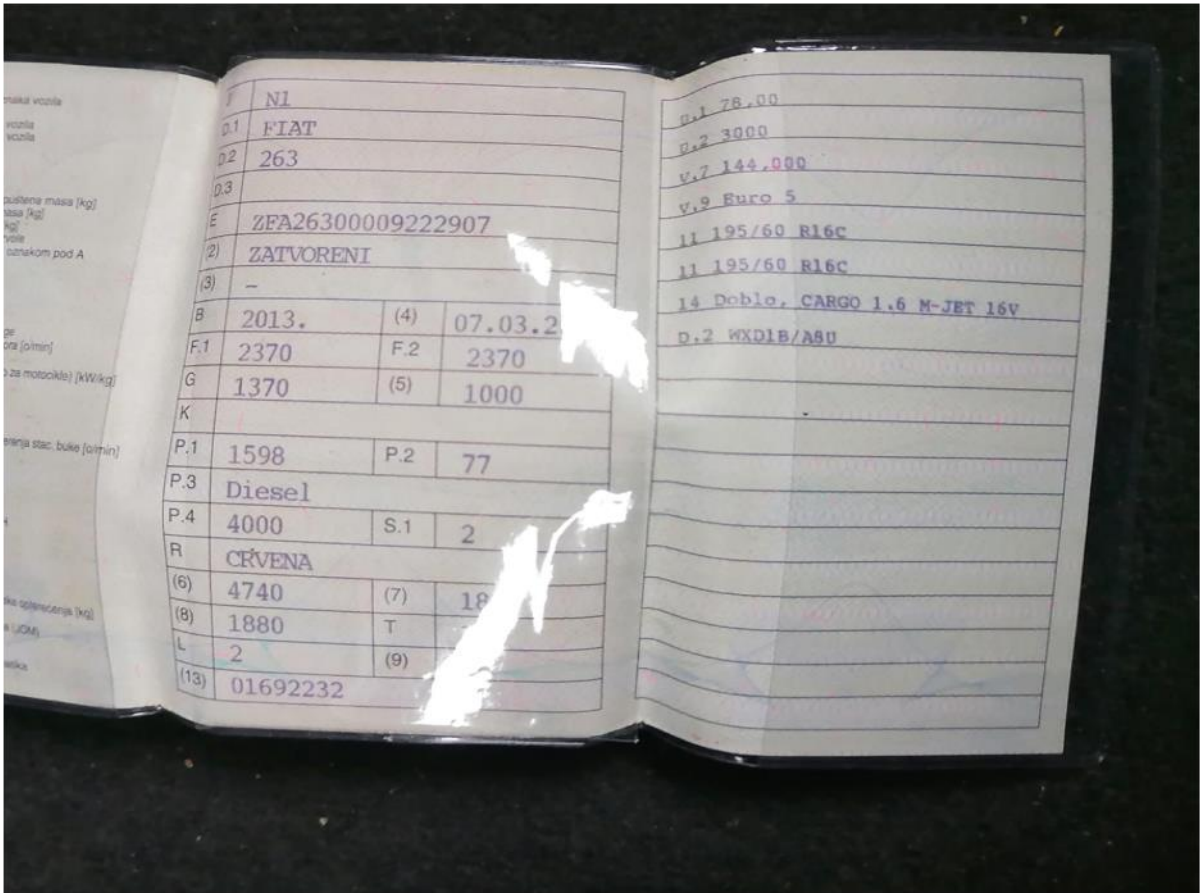 znaka vozila
vozila
vozila
masa [kg]
masa [kg]
[kg]
oznakom pod A
[o/min]
za motocikle) [kW/kg]
stac. buke [o/min]
[kg]
N1
D.1 FIAT
D.2 263
D.3
E ZFA26300009222907
(2) ZATVORENI
(3) –
B 2013. (4) 07.03.2
F.1 2370 F.2 2370
G 1370 (5) 1000
K
P.1 1598 P.2 77
P.3 Diesel
P.4 4000 S.1 2
R CRVENA
(6) 4740 (7) 18
(8) 1880 T
L 2 (9)
(13) 01692232
U.1 78,00
U.2 3000
V.7 144,000
V.9 Euro 5
11 195/60 R16C
11 195/60 R16C
14 Doblo, CARGO 1.6 M-JET 16V
D.2 WXD1B/A8U